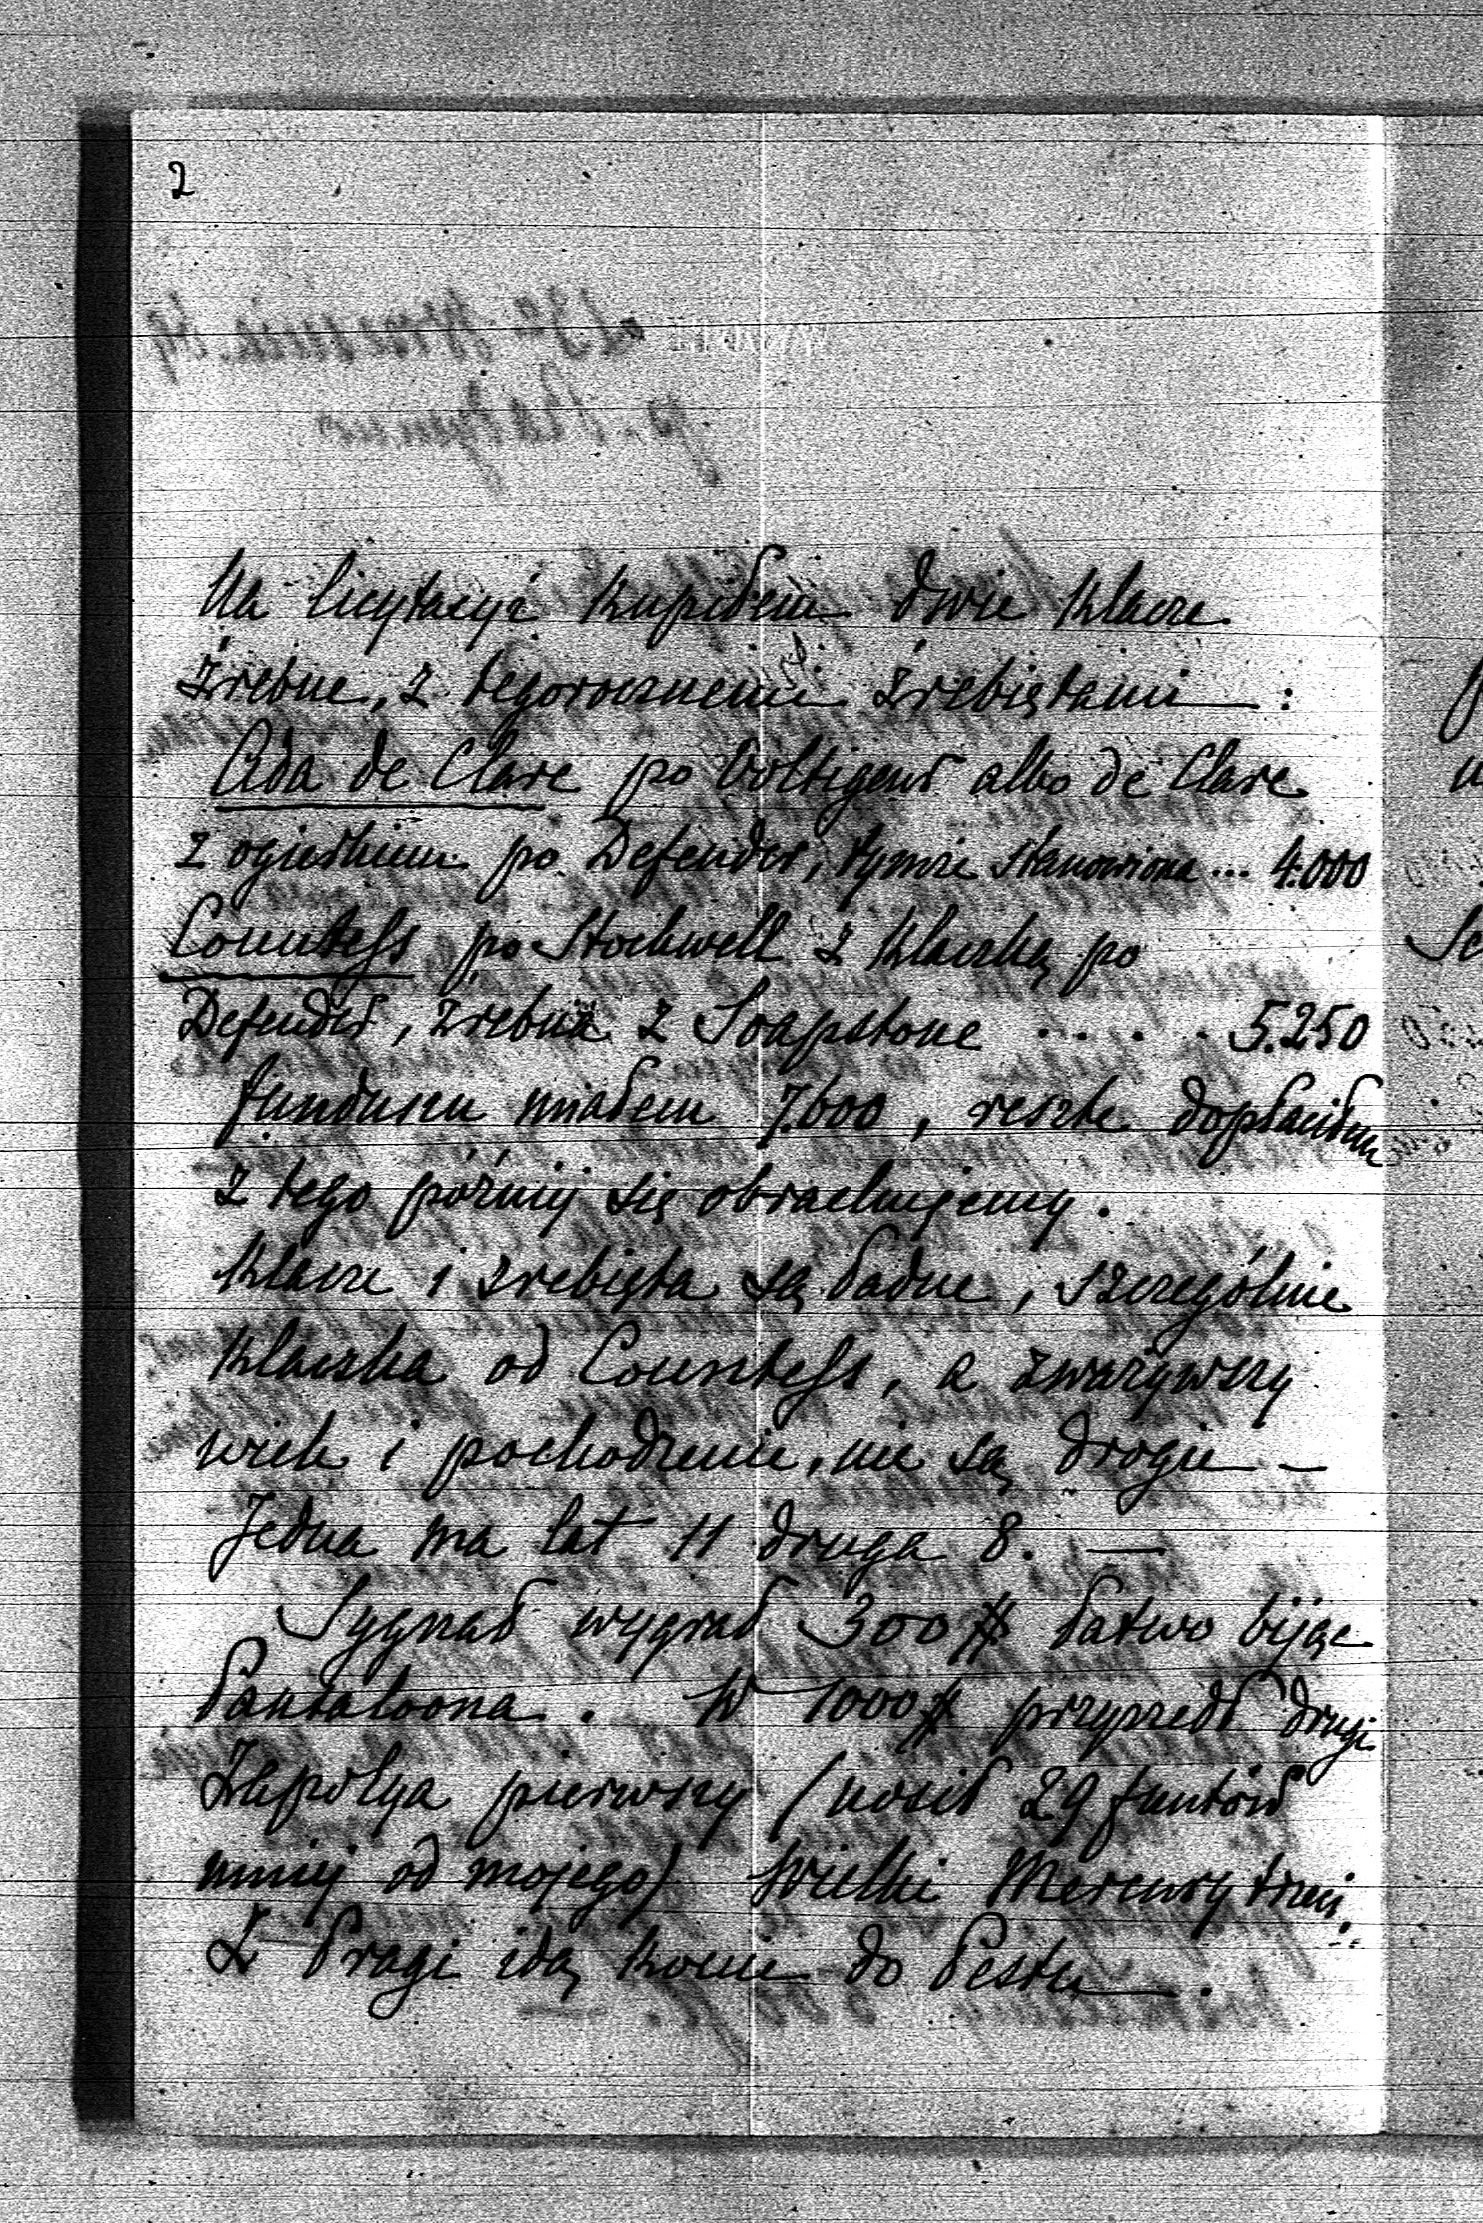 2
Na licytacyi kupiłem dwie klacze
źrebne, z tegorocznemi źrebiętami — :
Ada de Clare po Voltigeur albo de Clare
z ogierkiem po Defender, tymże stanowiona ... 4.000
Countess po Stockwell z klaczką po
Defender, źrebna z Soapstone . . . . 5.250
funduszu miałem 7.600, resztę dopłaciłem
z tego później się obrachujemy.
Klacze i źrebięta są ładne, szczególnie
klaczka od Countess, a zważywszy
wiek i pochodzenie, nie są drogie —
Jedna ma lat 11 druga 8. —
Sygnał wygrał 300 # łatwo bijąc
Pantaloona. W 1000 # przyszedł drugi
Zapolya pierwszy (nosił 29 funtów
mniej od mojego) Wielki Mercury trzeci.
Z Pragi idą konie do Pesztu — .